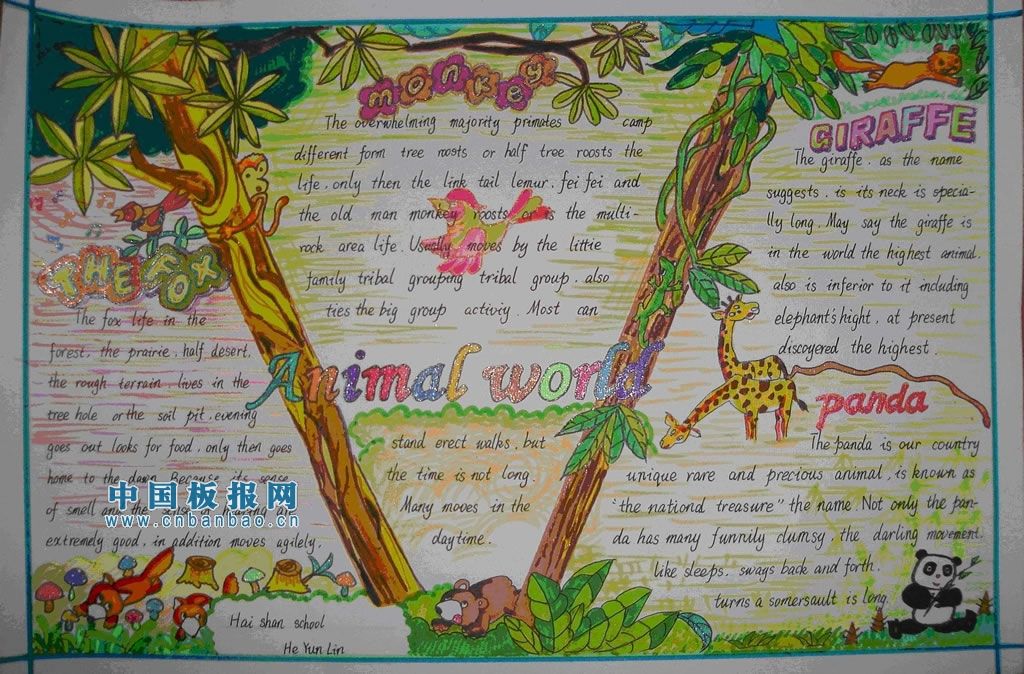 monkey
The overwhelming majority primates camp
different form tree roosts or half tree roosts the
life, only then the link tail lemur, fei fei and
the old man monkey roosts or is the multi-
rock area life. Usually moves by the little
family tribal grouping tribal group, also
ties the big group activiy. Most can
Animal world
stand erect walks, but
the time is not long.
Many moves in the
daytime.
THE FOX
The fox life in the
forest, the prairie, half desert,
the rough terrain, lives in the
tree hole or the soil pit, evening
goes out looks for food, only then goes
home to the dawn. Because its sense
of smell and the
extremely good, in addition moves agilely.
中国板报网
www.cnbanbao.cn
Hai shan school
He Yun Lin
GIRAFFE
The giraffe, as the name
suggests, is its neck is specia-
lly long. May say the giraffe is
in the world the highest animal.
also is inferior to it including
elephant's hight, at present
discoyered the highest.
panda
The panda is our country
unique rare and precious animal, is known as
"the nationd treasure" the name. Not only the pan-
da has many funnily clumsy, the darling movement.
like sleeps, sways back and forth.
turns a somersault is long.